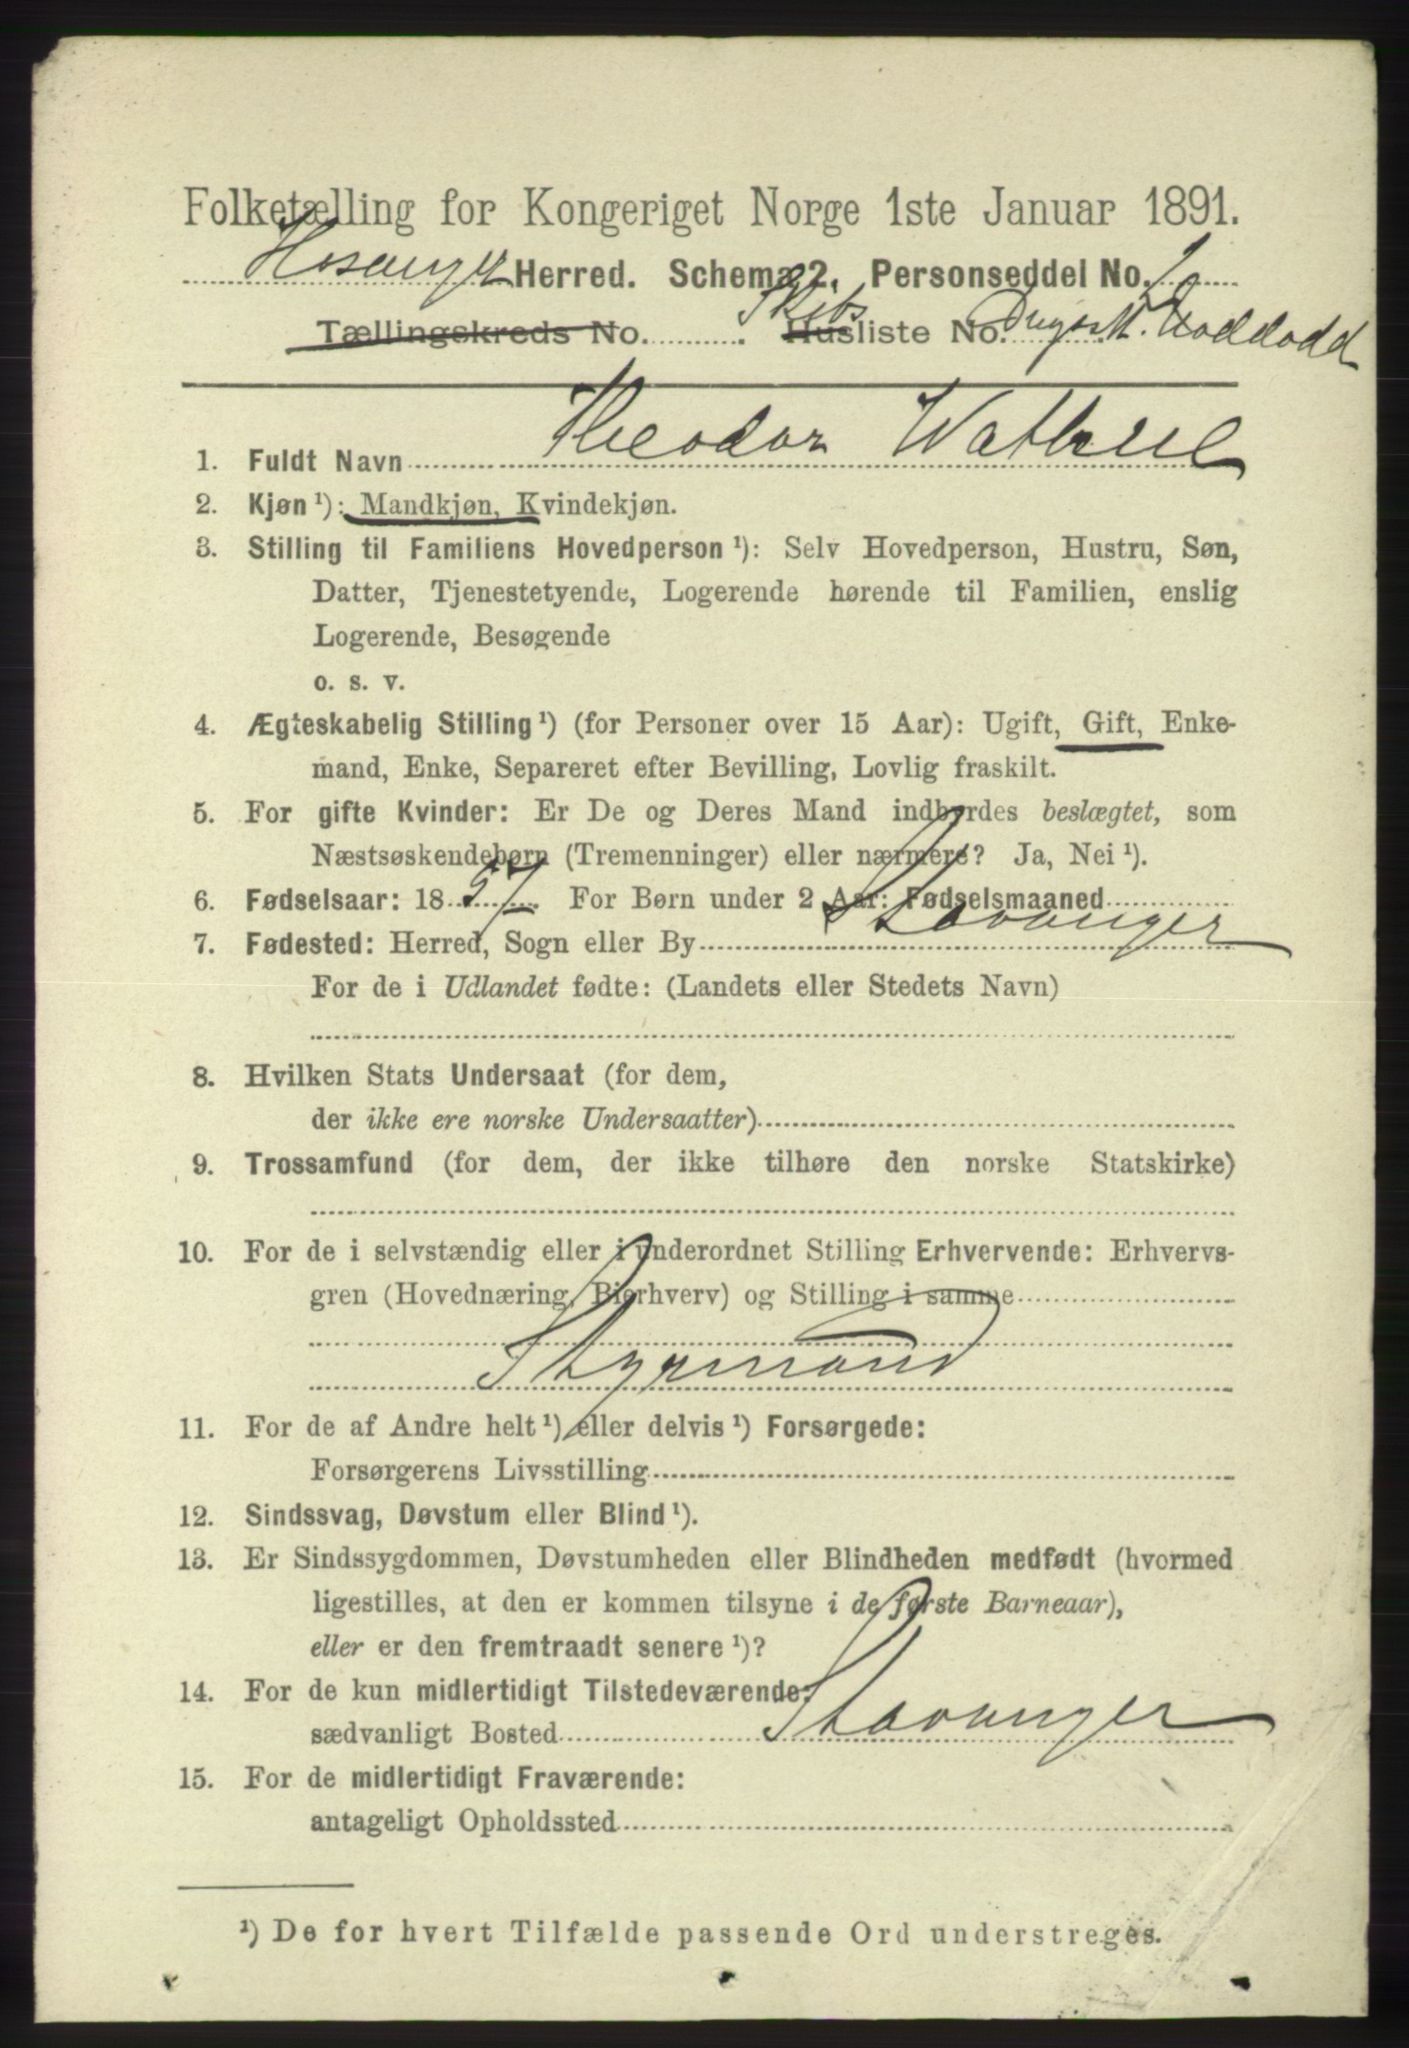 Folketælling for Kongeriget Norge 1ste Januar 1891.
Hosanger Herred. Schema 2. Personseddel No. 2
Tællingskreds No. ... . Skibs Husliste No. ... .
1. Fuldt Navn Theodor Wathne
2. Kjøn ¹): Mandkjøn, Kvindekjøn.
3. Stilling til Familiens Hovedperson ¹): Selv Hovedperson, Hustru, Søn,
Datter, Tjenestetyende, Logerende hørende til Familien, enslig
Logerende, Besøgende
o. s. v.
4. Ægteskabelig Stilling ¹) (for Personer over 15 Aar): Ugift, Gift, Enke-
mand, Enke, Separeret efter Bevilling, Lovlig fraskilt.
5. For gifte Kvinder: Er De og Deres Mand indbyrdes beslægtet, som
Næstsøskendebørn (Tremenninger) eller nærmere? Ja, Nei ¹).
6. Fødselsaar: 1857. For Børn under 2 Aar: Fødselsmaaned
7. Fødested: Herred, Sogn eller By Stavanger
For de i Udlandet fødte: (Landets eller Stedets Navn)
8. Hvilken Stats Undersaat (for dem,
der ikke ere norske Undersaatter)
9. Trossamfund (for dem, der ikke tilhøre den norske Statskirke)
10. For de i selvstændig eller i underordnet Stilling Erhvervende: Erhvervs-
gren (Hovednæring, Bierhverv) og Stilling i samme
Styrmand
11. For de af Andre helt ¹) eller delvis ¹) Forsørgede:
Forsørgerens Livsstilling
12. Sindssvag, Døvstum eller Blind ¹).
13. Er Sindssygdommen, Døvstumheden eller Blindheden medfødt (hvormed
ligestilles, at den er kommen tilsyne i de første Barneaar),
eller er den fremtraadt senere ¹)?
14. For de kun midlertidigt Tilstedeværende:
sædvanligt Bosted Stavanger
15. For de midlertidigt Fraværende:
antageligt Opholdssted
¹) De for hvert Tilfælde passende Ord understreges.